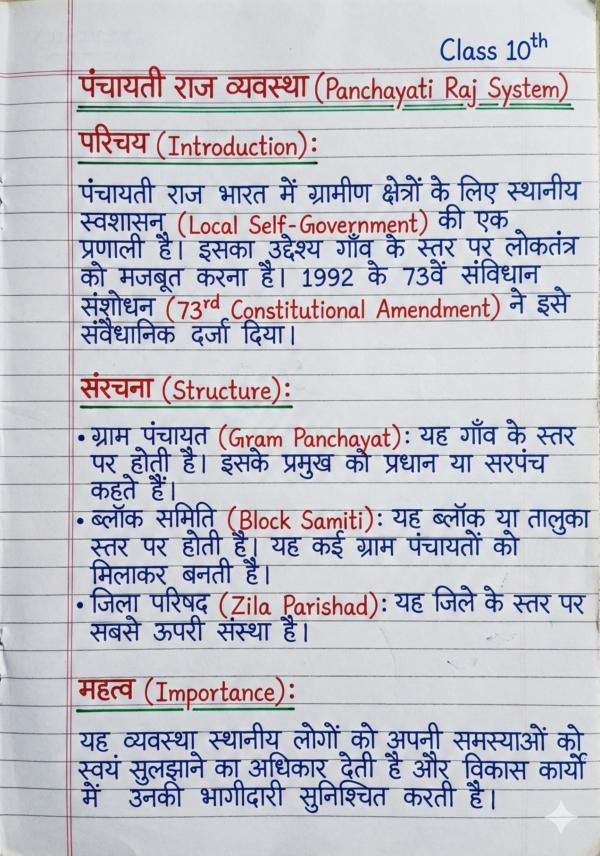 Class 10th
पंचायती राज व्यवस्था (Panchayati Raj System)
परिचय (Introduction):
पंचायती राज भारत में ग्रामीण क्षेत्रों के लिए स्थानीय
स्वशासन (Local Self-Government) की एक
प्रणाली है। इसका उद्देश्य गाँव के स्तर पर लोकतंत्र
को मजबूत करना है। 1992 के 73वें संविधान
संशोधन (73rd Constitutional Amendment) ने इसे
संवैधानिक दर्जा दिया।
संरचना (Structure):
• ग्राम पंचायत (Gram Panchayat): यह गाँव के स्तर
पर होती है। इसके प्रमुख को प्रधान या सरपंच
कहते हैं।
• ब्लॉक समिति (Block Samiti): यह ब्लॉक या तालुका
स्तर पर होती है। यह कई ग्राम पंचायतों को
मिलाकर बनती है।
• जिला परिषद (Zila Parishad): यह जिले के स्तर पर
सबसे ऊपरी संस्था है।
महत्व (Importance):
यह व्यवस्था स्थानीय लोगों को अपनी समस्याओं को
स्वयं सुलझाने का अधिकार देती है और विकास कार्यों
में उनकी भागीदारी सुनिश्चित करती है।